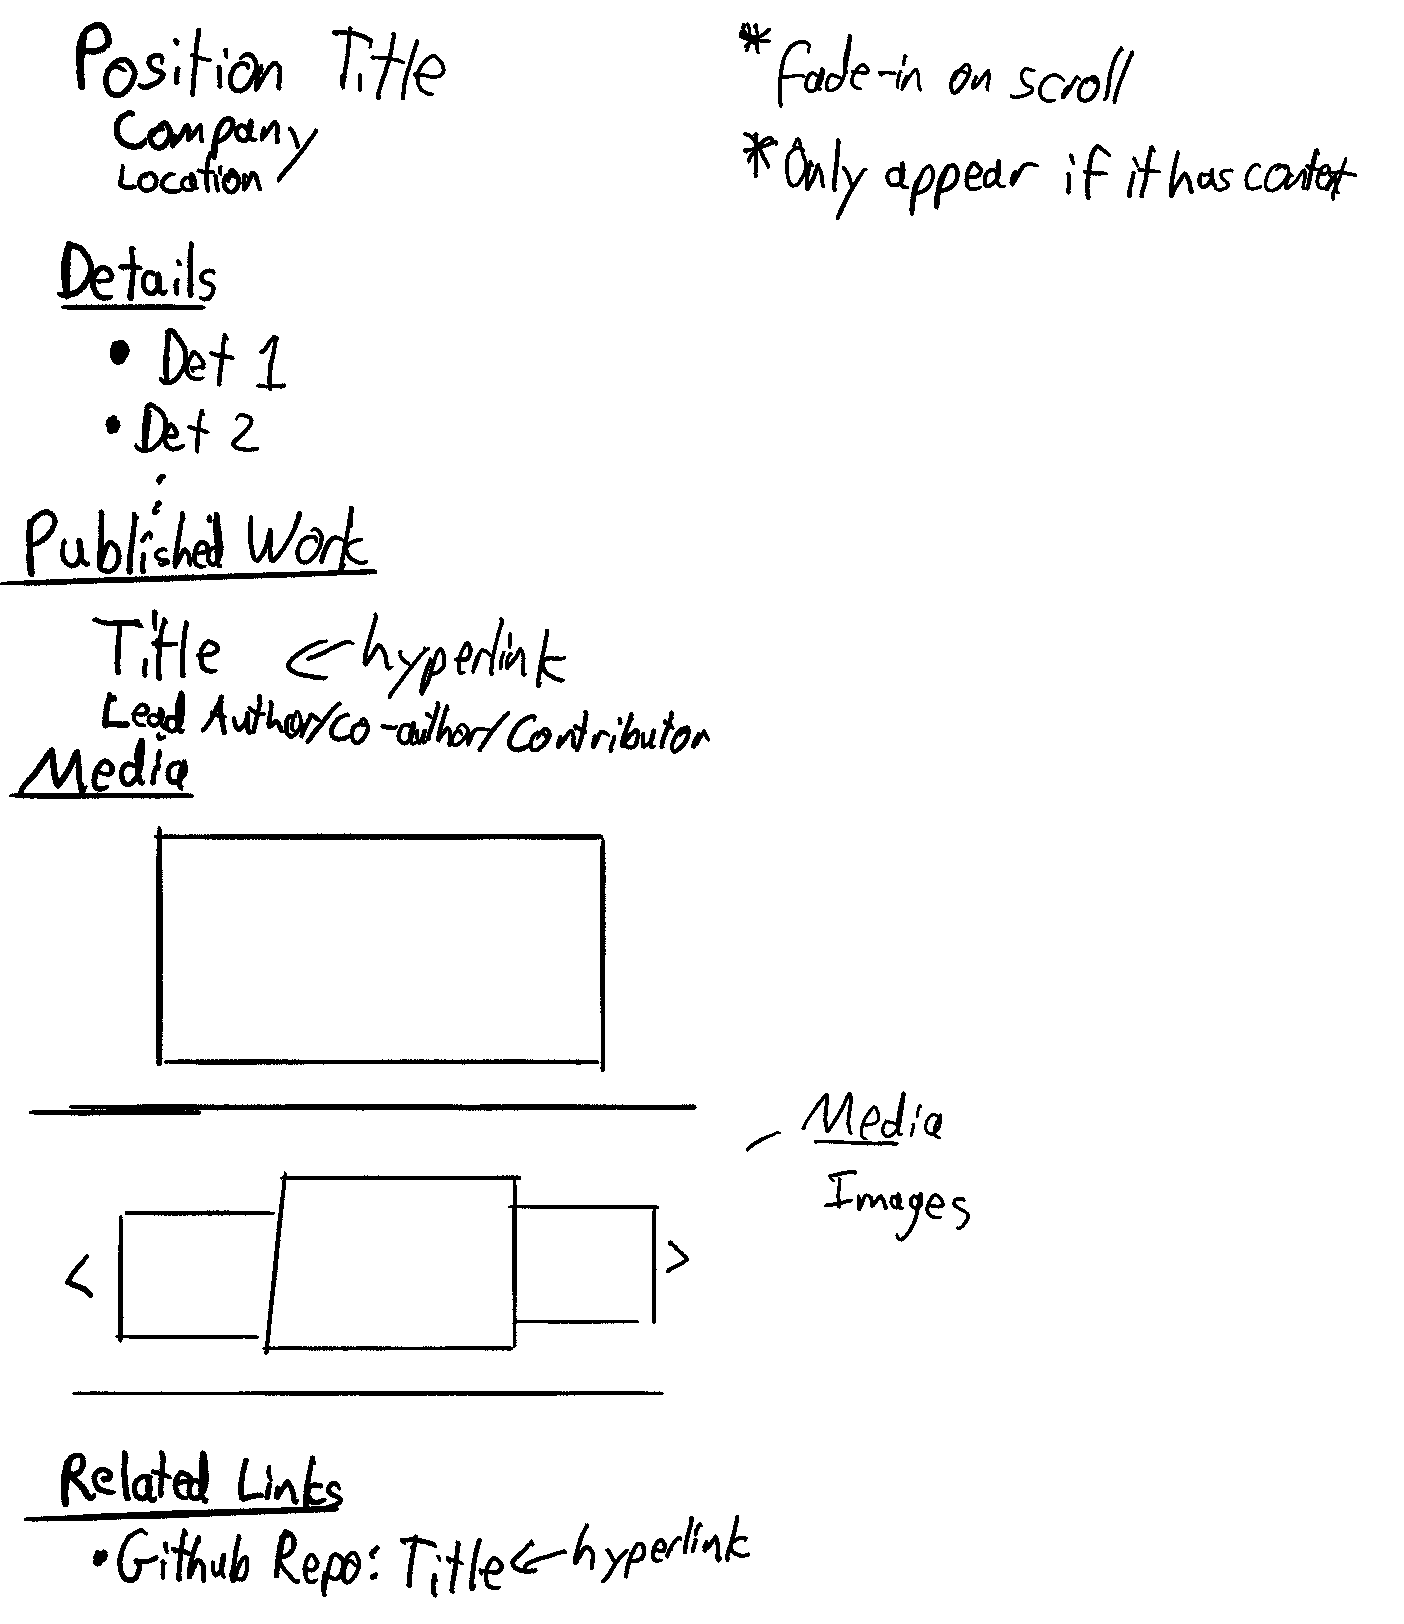 Position Title
Company
Location
* Fade-in on scroll
* Only appear if it has content
Details
• Det 1
• Det 2
Published Work
Title <- hyperlink
Lead Author/co-author/Contributor
Media
Media
Images
< >
Related Links
• Github Repo: Title <- hyperlink